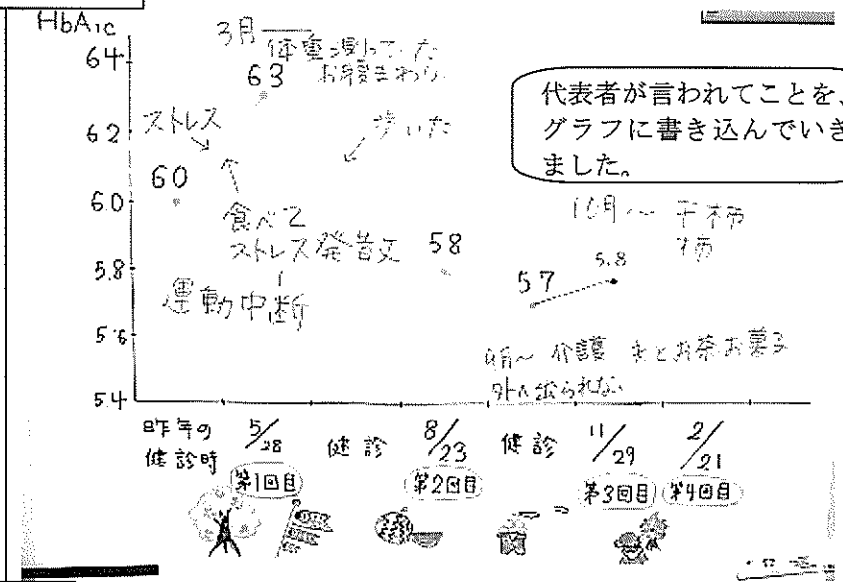 HbA1c
6.4
6.2
6.0
5.8
5.6
5.4
3月
体重 測っていた
お腹まわり
63
ストレス
歩いた
60
食べて
ストレス発散
運動中断
58
57
5.8
10月〜 干柿
柿
介護 お茶お菓子
外へ出られない
代表者が言われてことを、
グラフに書き込んでいき
ました。
昨年の
健診時
5/28
第1回目
健診
8/23
第2回目
健診
11/29
第3回目
2/21
第4回目